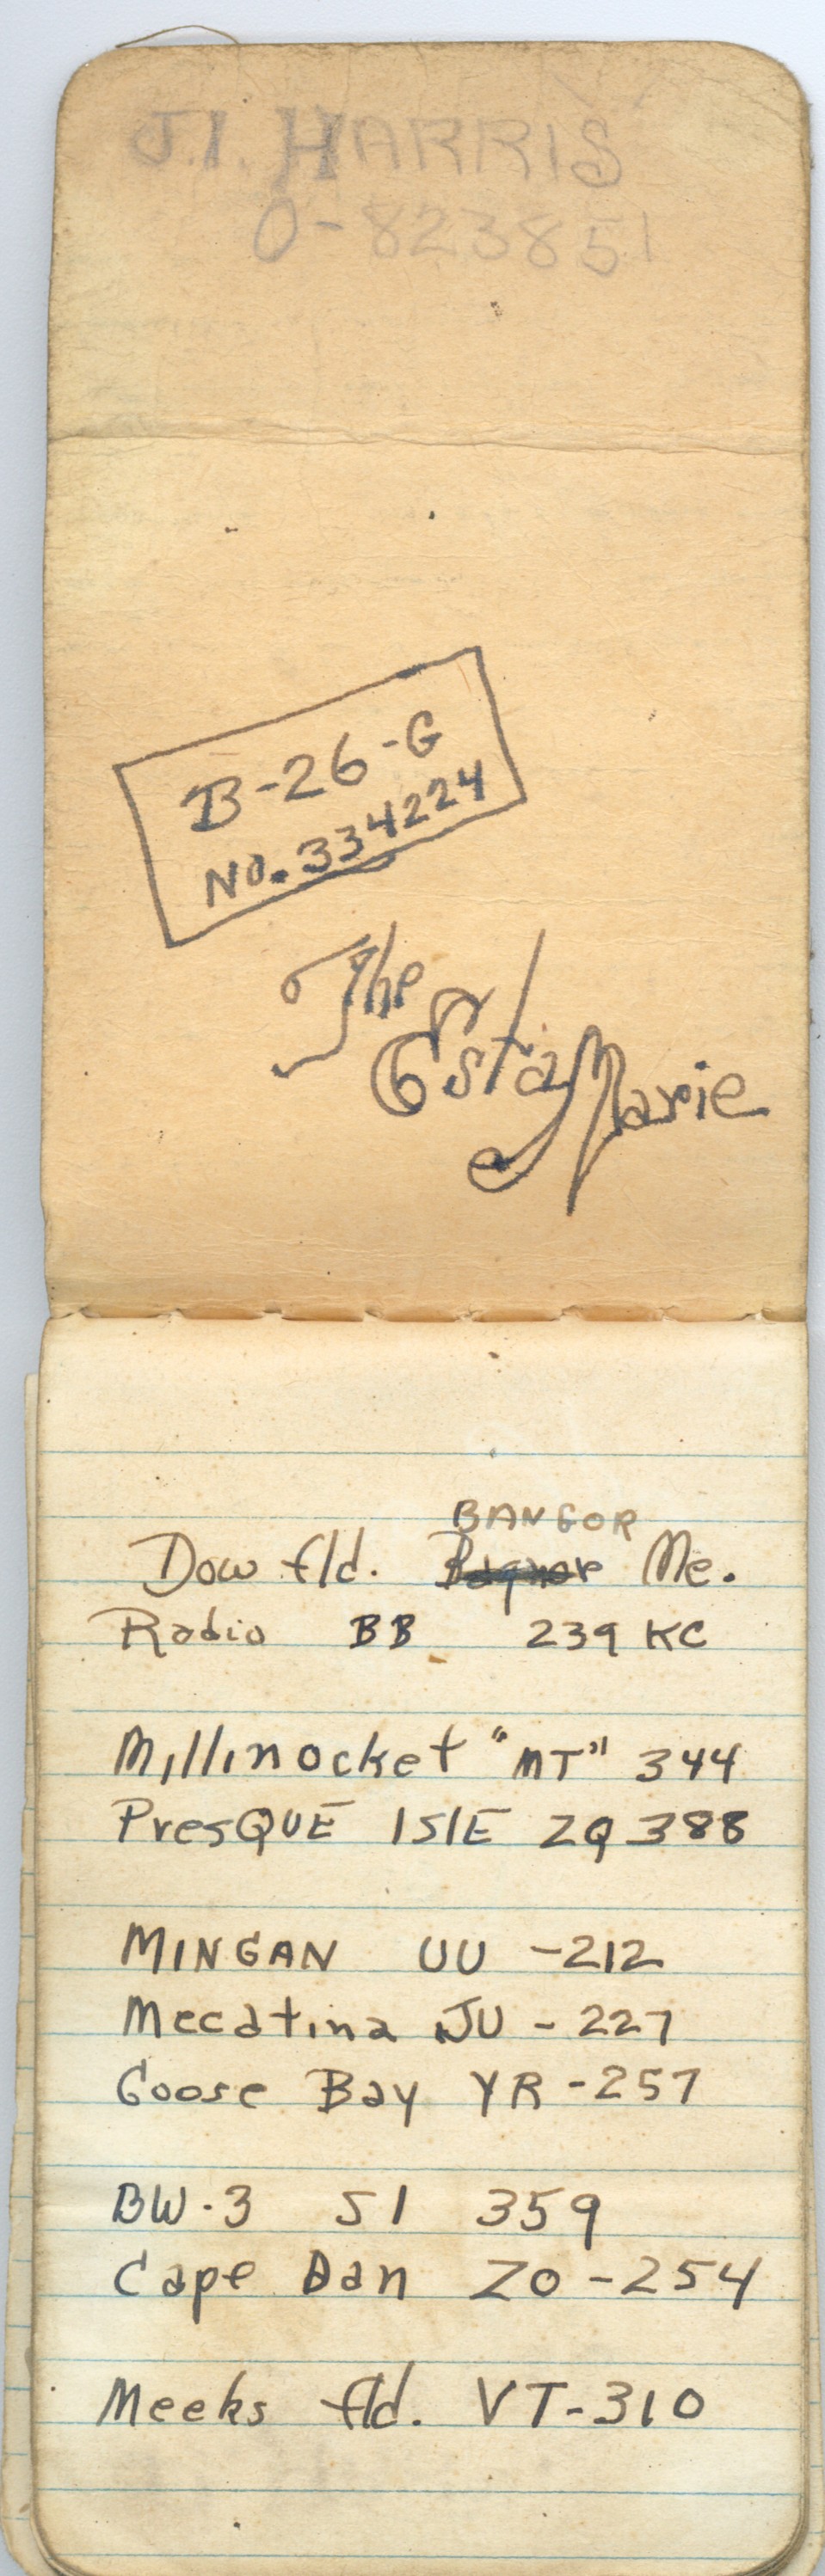 J.I. HARRIS
O-823851
B-26-G
NO. 334224
The
Esta Marie
BANGOR
Dow fld. Me.
Radio BB 239 KC
Millinocket "MT" 344
PresQUE ISLE ZQ 388
MINGAN UU -212
Mecatina JU - 227
Goose Bay YR -257
BW-3 SI 359
Cape Dan ZO -254
Meeks fld. VT-310